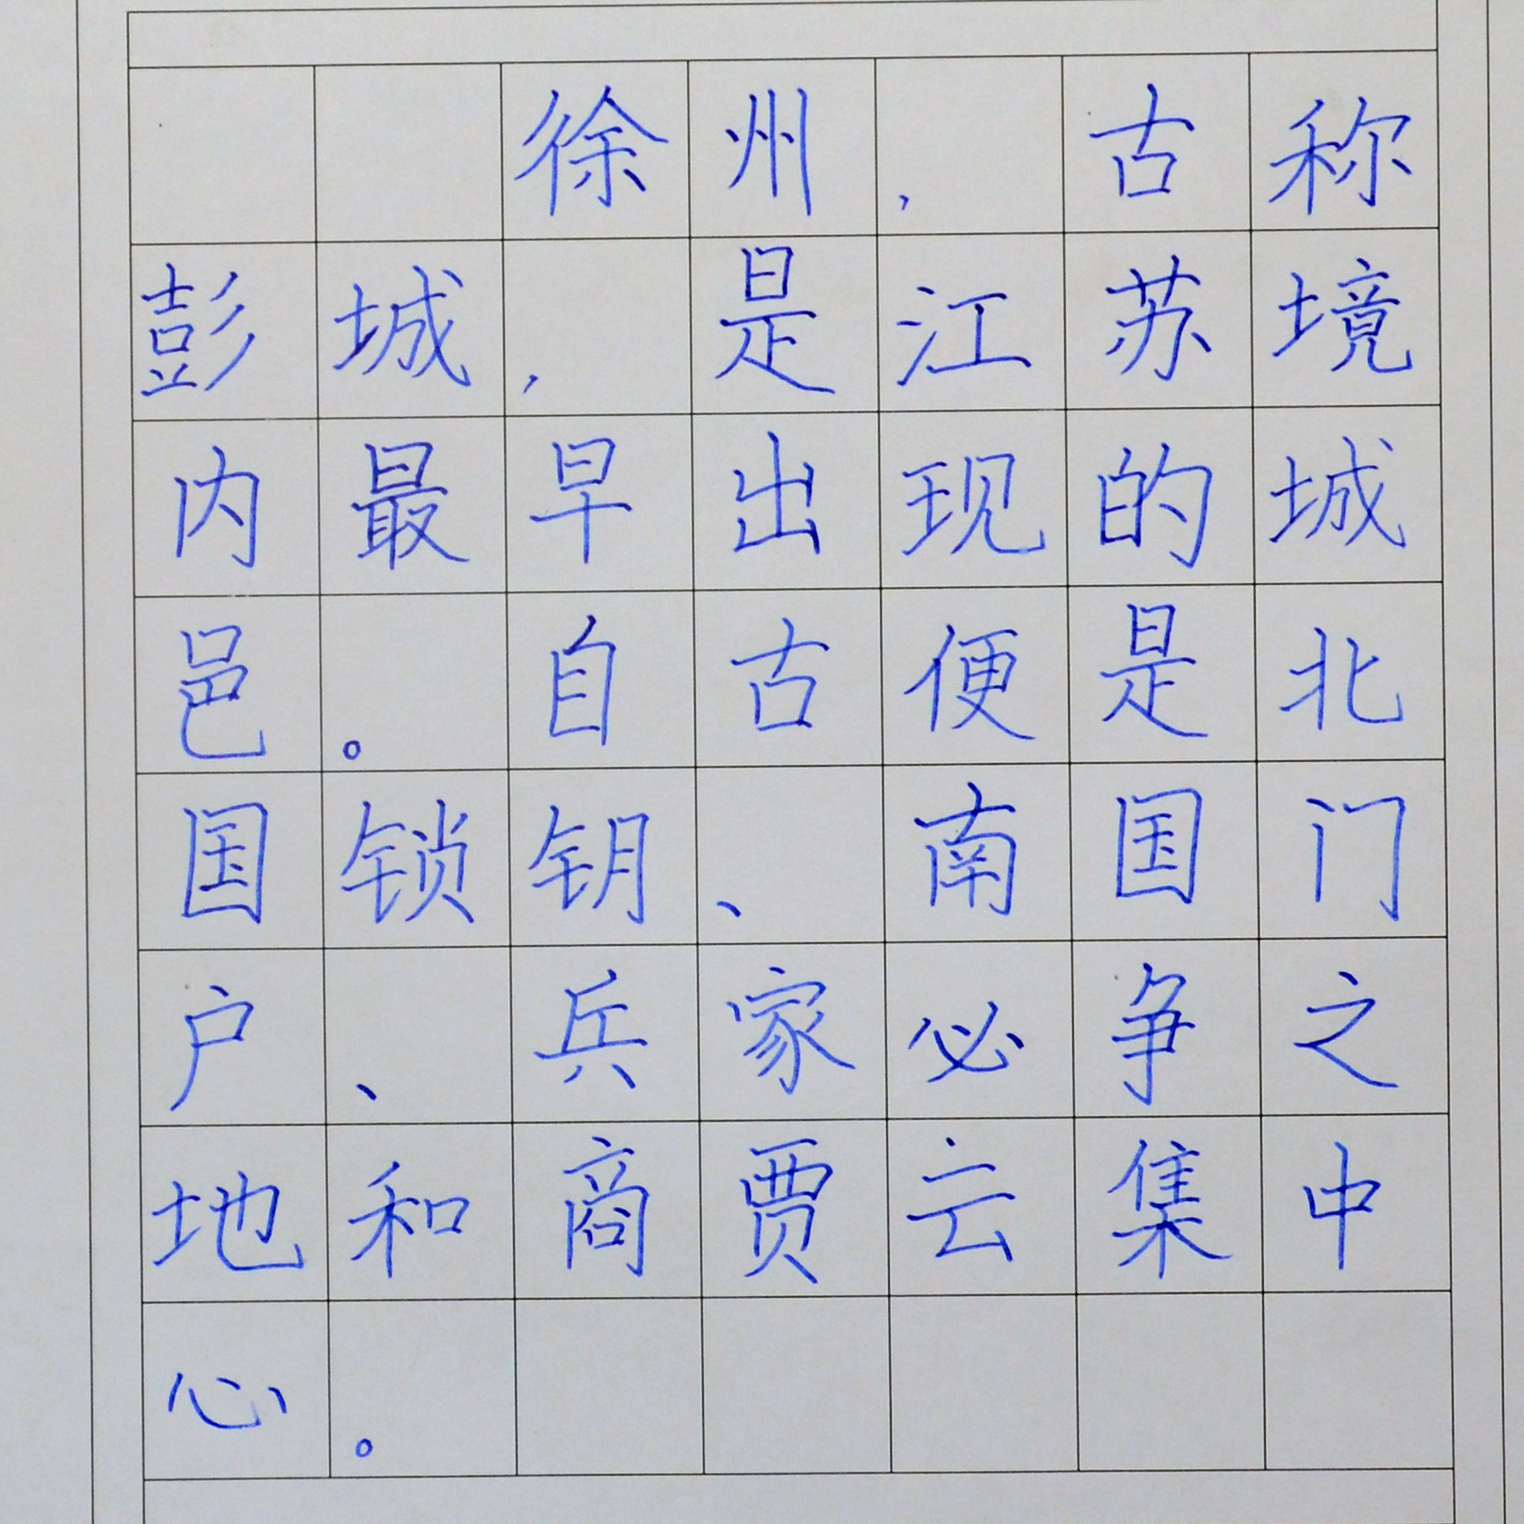 徐州，古称
彭城，是江苏境
内最早出现的城
邑。自古便是北
国锁钥、南国门
户、兵家必争之
地和商贾云集中
心。